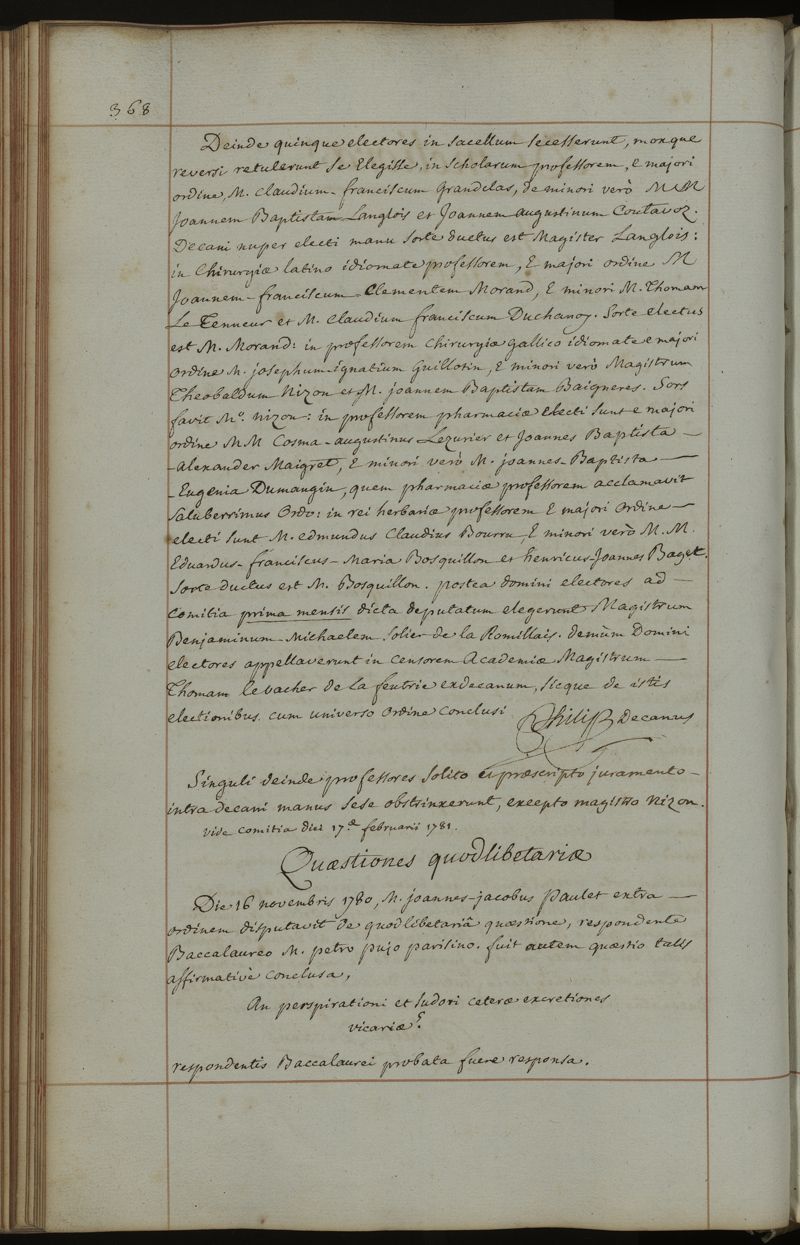 368
Deinde quinque electores in sacellum secesserunt, moxque
reversi retulerunt se Elegisse, in Scholarum professorem, e majori
ordine, M. Claudium-franciscum Grandclas, de minori verò MM
Joannem Baptistam Langlois et Joannem augustinum Coutavoz.
Decani nuper electi manu sorte ductus est Magister Langlois:
in Chirurgiæ latino idiomate professorem, E majori ordine M
Joannem-franciscum-Clementem Morand, E minori M. Thomam
Le Tenneur et M. Claudium franciscum Duchanoy. Sorte electus
est M. Morand: in professorem chirurgiæ gallico idiomate e majori
ordine M. josephum-ignatium Guillotin, E minori verò Magistrum
Theobaldum Nizon et M. joannem Baptistam Baigneres. Sors
favit Mo. nizon: in professorem pharmaciæ electi sunt e majori
ordine MM Cosma-augustinus-Lezurier et Joannes Baptista —
-alexander Maigret, E minori verò M. joannes-Baptista —
-Eugenia Dumangin, quem pharmaciæ professorem acclamavit
Saluberrimus Ordo: in rei herbariæ professorem E majori ordine —
electi sunt M. edmundus Claudius Bourru, E minori verò M.M.
Eduardus-franciscus-Maria Bosquillon et henricus-Joannes Baget.
Sorte ductus est M. Bosquillon. postea domini electores ad —
Comitia prima mensis dicta deputatum elegerunt Magistrum
Benjaminum-Michaelem Solier de la Romillais. demùm Domini
electores appellaverunt in censorem Academiæ Magistrum —
Thomam levacher de la feutrie exdecanum, sicque de istis
electionibus cum universo Ordine conclusi Philip Decanus
Singuli deinde professores solito et præscripto juramento-
intra decani manus sese obstrinxerunt, excepto magistro Nizon.
vide comitia diei 17a februarii 1781.
Quæstiones quodlibetariæ
Die 16 novembris 1780, M. joannes-jacobus paulet extra —
ordinem disputavit de quodlibetariâ quæstione, respondente
Baccalaureo M. petro pujo parisino. fuit autem quæstio talis
affirmativè conclusa,
An perspirationi et sudori ceteræ excretiones
vicariæ?
respondentis Baccalaurei probata fuere responsa.